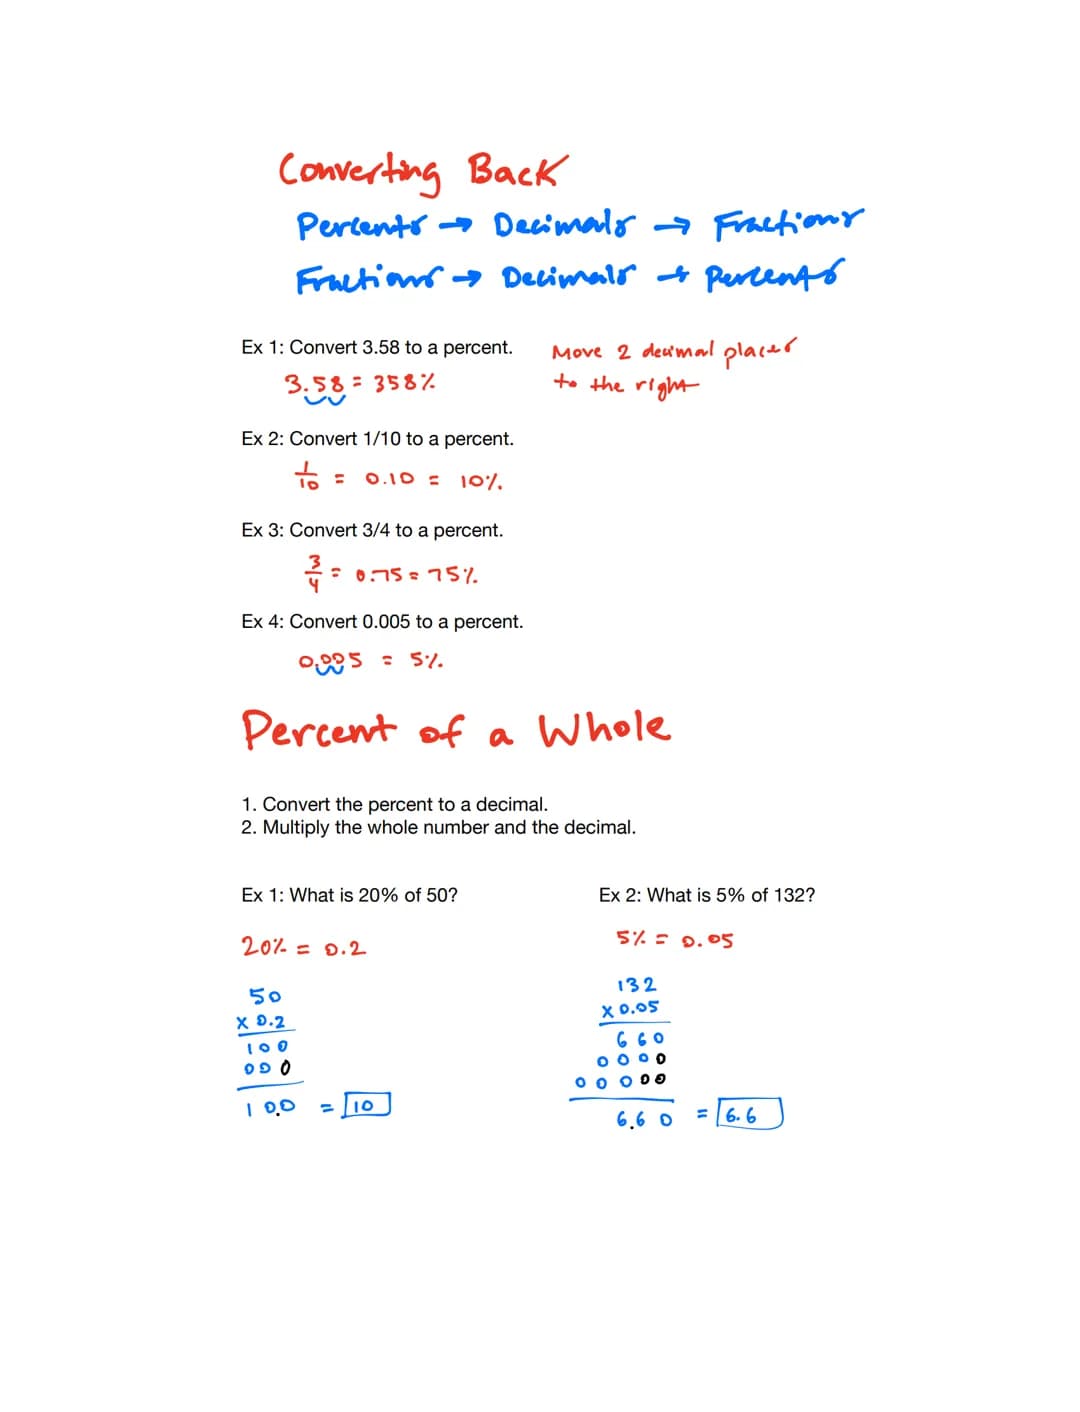 Converting Back
Percents → Decimals → Fractions
Fractions → Decimals → Percents
Ex 1: Convert 3.58 to a percent.
Move 2 decimal places
to the right
3.58 = 358%
Ex 2: Convert 1/10 to a percent.
1/10 = 0.10 = 10%.
Ex 3: Convert 3/4 to a percent.
3/4 = 0.75 = 75%.
Ex 4: Convert 0.005 to a percent.
0.005 = 5%.
Percent of a Whole
1. Convert the percent to a decimal.
2. Multiply the whole number and the decimal.
Ex 1: What is 20% of 50?
20% = 0.2
50
x 0.2
100
000
10.0 = 10
Ex 2: What is 5% of 132?
5% = 0.05
132
x 0.05
660
0000
00000
6.60 = 6.6